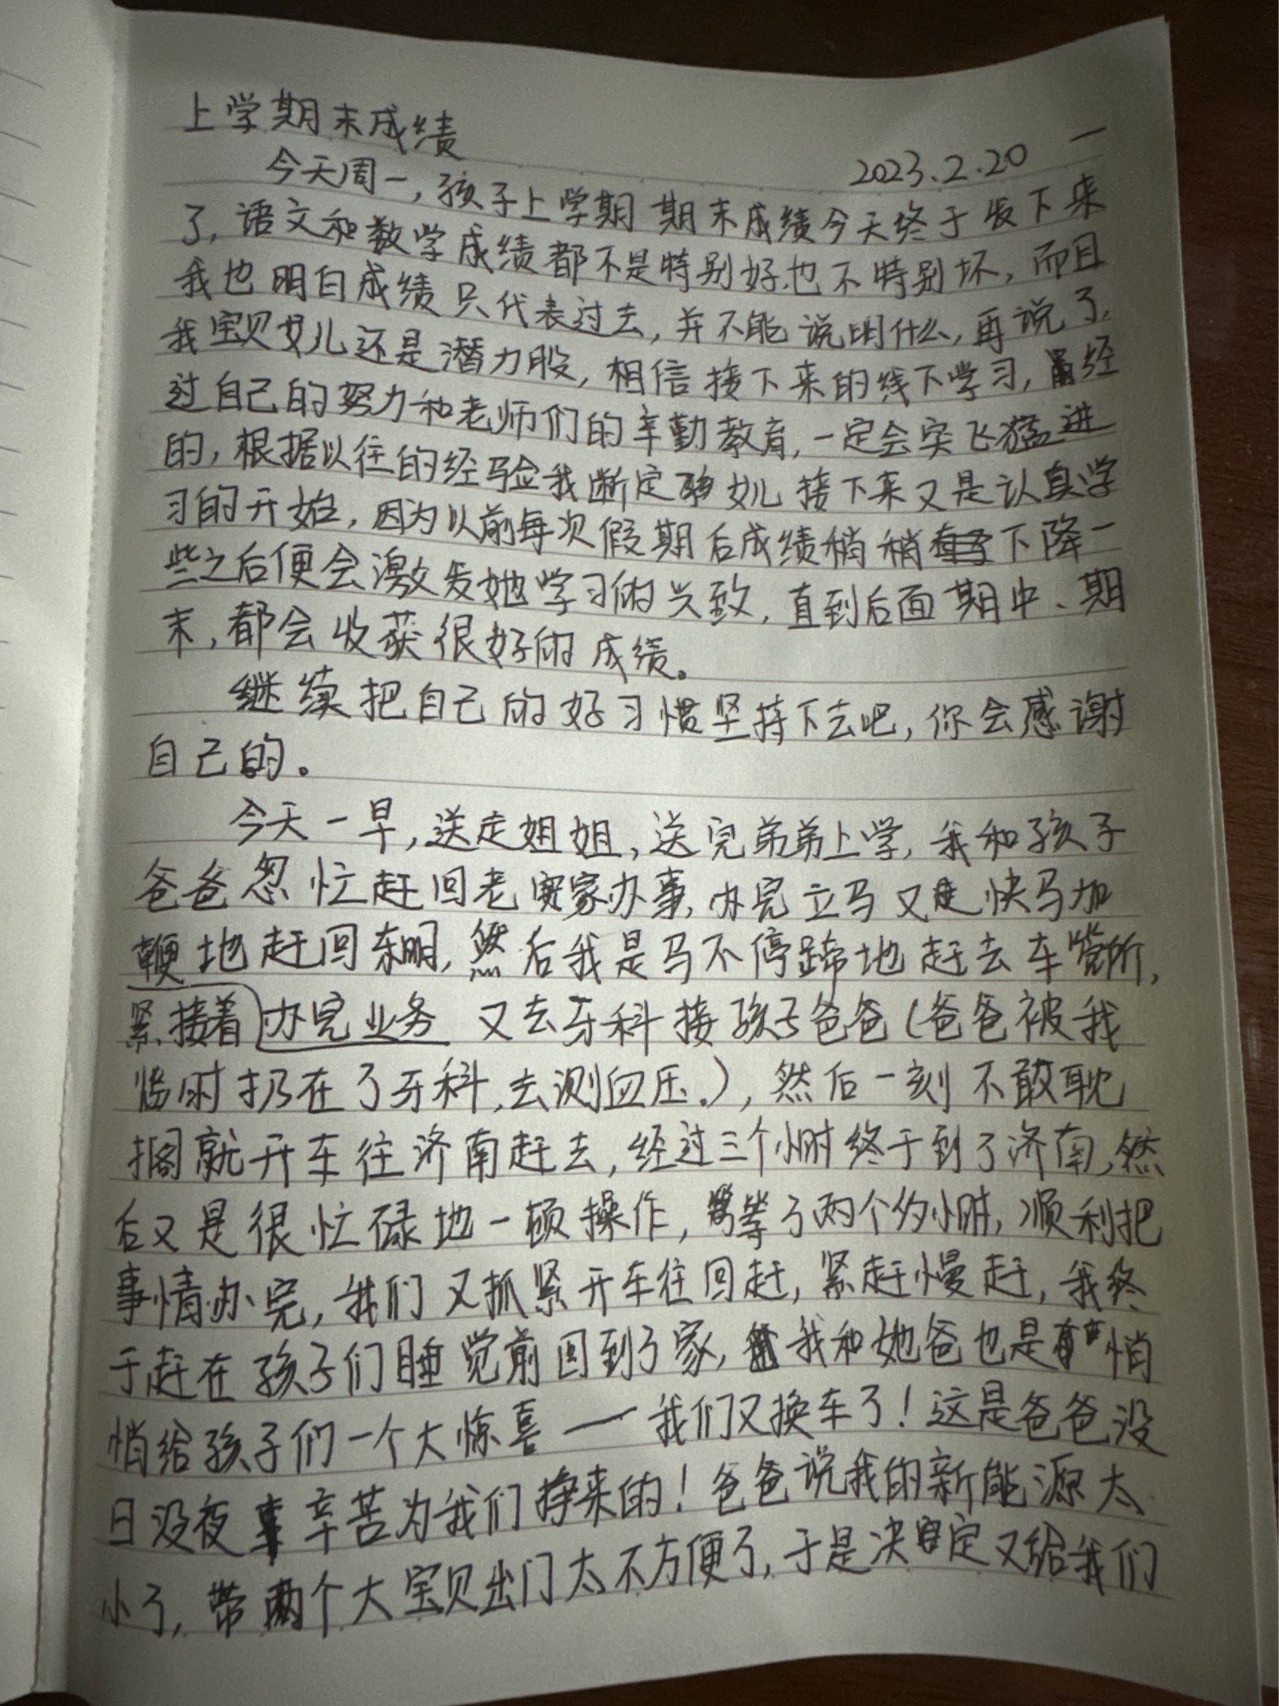 上学期末成绩
2023.2.20 一
今天周一，孩子上学期期末成绩今天终于发下来
了，语文和数学成绩都不是特别好也不特别坏，而且
我也明白成绩只代表过去，并不能说明什么，再说了，
我宝贝女儿还是潜力股，相信接下来的线下学习，经
过自己的努力和老师们的辛勤教育，一定会突飞猛进
的，根据以往的经验我断定女儿接下来又是认真学
习的开始，因为以前每次假期后成绩稍稍下降一
些之后便会激发她学习的兴致，直到后面期中、期
末，都会收获很好的成绩。
继续把自己的好习惯坚持下去吧，你会感谢
自己的。
今天一早，送走姐姐，送完弟弟上学，我和孩子
爸爸忽忙赶回老家办事，办完立马又是快马加
鞭地赶回东明，然后我是马不停蹄地赶去车管所，
紧接着办完业务 又去牙科接孩子爸爸（爸爸被我
临时扔在了牙科，去测血压。），然后一刻不敢耽
搁就开车往济南赶去，经过三个小时终于到了济南，然
后又是很忙碌地一顿操作，等了两个多小时，顺利把
事情办完，我们又抓紧开车往回赶，紧赶慢赶，我终
于赶在孩子们睡觉前回到了家，我和她爸也是悄
悄给孩子们一个大惊喜——我们又换车了！这是爸爸没
日没夜辛苦为我们挣来的！爸爸说我的新能源太
小了，带两个大宝贝出门太不方便了，于是决定又给我们